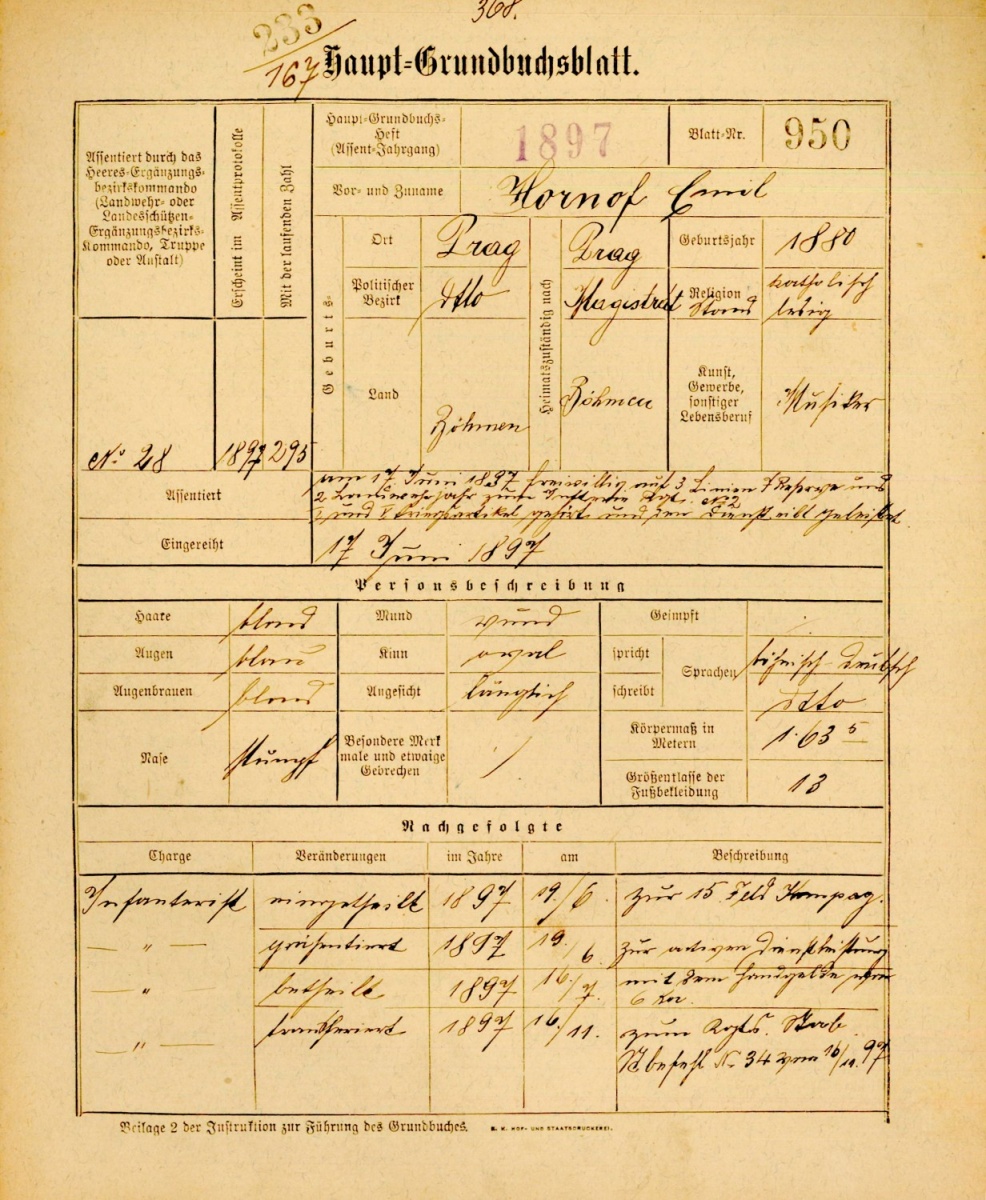 368.
233
167
Haupt-Grundbuchsblatt.
Assentiert durch das
Heeres-Ergänzungs-
bezirkskommando
(Landwehr- oder
Landesschützen-
Ergänzungsbezirks-
Kommando, Truppe
oder Anstalt)
Erscheint im Assentprotokolle
Mit der laufenden Zahl
Haupt-Grundbuchs-
Heft
(Assent-Jahrgang)
1897
Blatt-Nr.
950
Vor- und Zuname
Hornof Emil
Geburts-
Ort
Prag
Politischer
Bezirk
dtto
Land
Böhmen
Heimatszuständig nach
Prag
Magistrat
Böhmen
Geburtsjahr
1880
Religion
Stand
katholisch
ledig
Kunst,
Gewerbe,
sonstiger
Lebensberuf
Musiker
No 28
1897
295
Assentiert
am 17. Juni 1897 freiwillig auf 3 Linien 7 Reserve und
2 Landwehrjahr zum Inftrie Rgt. No 2
und Kriegsartikel und den Diensteid geleistet
Eingereiht
17 Juni 1897
Personsbeschreibung
Haare
blond
Mund
Geimpft
Augen
blau
Kinn
oval
spricht
Sprachen
böhmisch-deutsch
Augenbrauen
blond
Angesicht
länglich
schreibt
dtto
Nase
stumpf
Besondere Merk
male und etwaige
Gebrechen
/
Körpermaß in
Metern
1·63 5
Größenklasse der
Fußbekleidung
13
Nachgefolgte
Charge
Veränderungen
im Jahre
am
Beschreibung
Infanterist
eingetheilt
1897
19./6.
zur 15. Feld Kompag.
— " —
präsentiert
1897
19./6.
zur activen Dienstleistung
"
betheilt
1897
16./7.
mit dem Handgelde von
6 Kr.
— " —
transferiert
1897
16./11.
zum Rgts. Stab.
Rbefehl No 34 vom 16/11. 97
Beilage 2 der Instruktion zur Führung des Grundbuches.
K. K. HOF- UND STAATSDRUCKEREI.